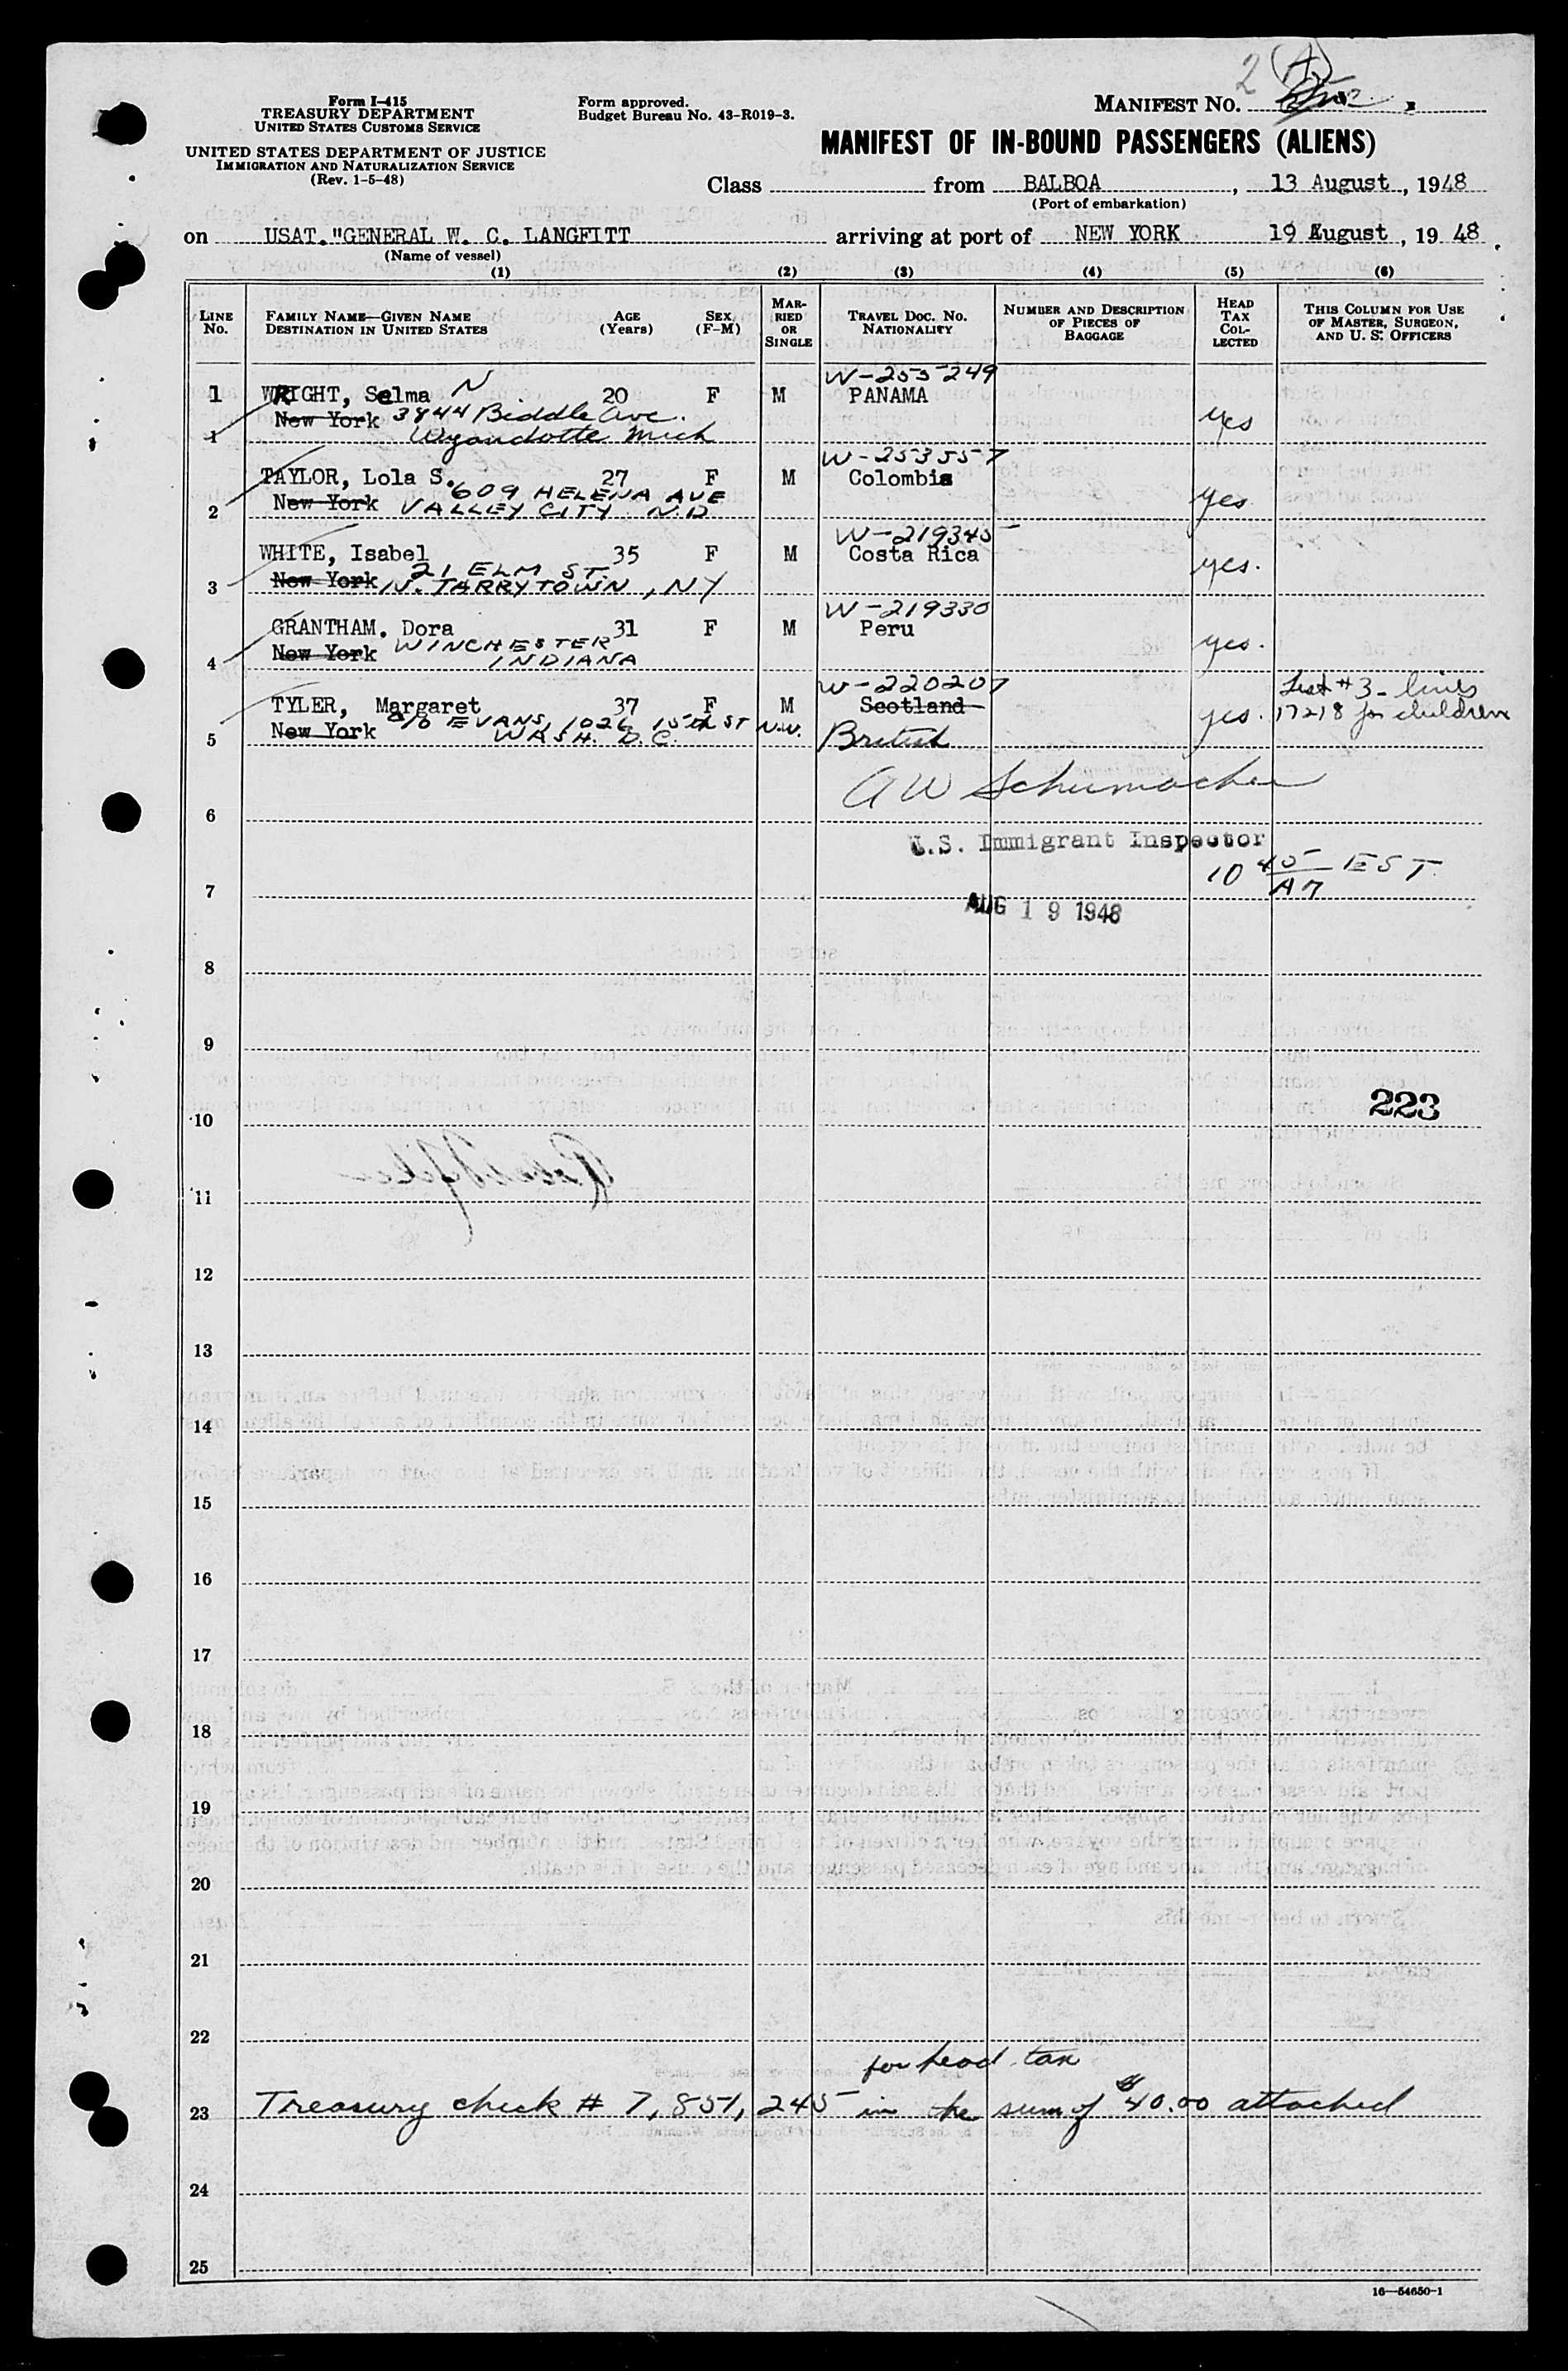 2 (A)
Form I-415
TREASURY DEPARTMENT
UNITED STATES CUSTOMS SERVICE
UNITED STATES DEPARTMENT OF JUSTICE
IMMIGRATION AND NATURALIZATION SERVICE
(Rev. 1-5-48)
Form approved.
Budget Bureau No. 43-R019-3.
MANIFEST NO.
MANIFEST OF IN-BOUND PASSENGERS (ALIENS)
Class from BALBOA, 13 August, 1948
(Port of embarkation)
on USAT. "GENERAL W. C. LANGFITT arriving at port of NEW YORK 19 August, 1948.
(Name of vessel)
(1) (2) (3) (4) (5) (6)
LINE No.
FAMILY NAME—GIVEN NAME
DESTINATION IN UNITED STATES
AGE (Years)
SEX (F-M)
MARRIED OR SINGLE
TRAVEL DOC. NO.
NATIONALITY
NUMBER AND DESCRIPTION OF PIECES OF BAGGAGE
HEAD TAX COLLECTED
THIS COLUMN FOR USE OF MASTER, SURGEON, AND U. S. OFFICERS
W-255249
1 WRIGHT, Selma N 20 F M PANAMA
New York 3844 Biddle Ave. yes
1 Wyandotte Mich
W-253557
TAYLOR, Lola S. 27 F M Colombia
609 HELENA AVE
2 New York VALLEY CITY N.D yes
W-219345
WHITE, Isabel 35 F M Costa Rica
21 ELM ST. yes.
3 New York N. TARRYTOWN, NY
W-219330
GRANTHAM. Dora 31 F M Peru
New York WINCHESTER yes.
4 INDIANA
W-220207 List #3 - lines
TYLER, Margaret 37 F M Scotland yes. 17218 for children
New York c/o EVANS, 1026 15th ST N.W.
5 WASH. D.C. British
A W Schumacher
6
U.S. Immigrant Inspector
10 45 EST
AM
7
AUG 19 1948
8
9
223
10
11
12
13
14
15
16
17
18
19
20
21
22
for head tax
23 Treasury check # 7,851,245 in the sum of $40.00 attached
24
25
16—54650-1